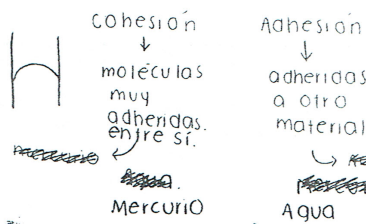 Cohesión
moléculas
muy
adheridas
entre sí.
Mercurio
Adhesión
adheridas
a otro
material
Agua